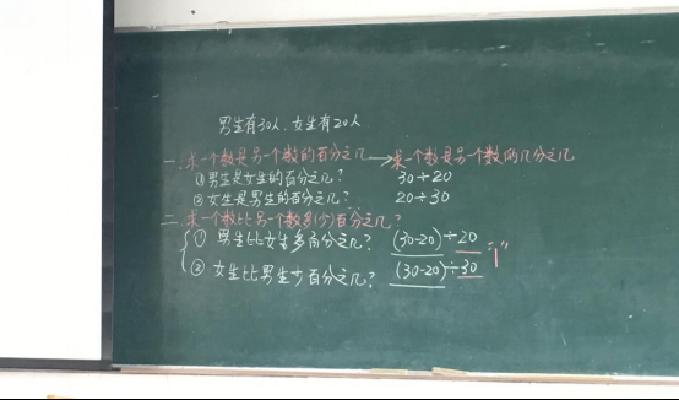 男生有30人、女生有20人
一、求一个数是另一个数的百分之几→求一个数是另一个数的几分之几
①男生是女生的百分之几? 30÷20
②女生是男生的百分之几? 20÷30
二、求一个数比另一个数多(少)百分之几?
① 男生比女生多百分之几? (30-20)÷20
② 女生比男生少百分之几? (30-20)÷30
"1"